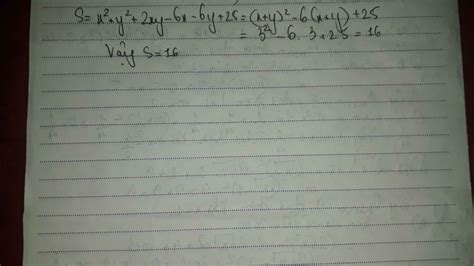 S = x² + y² + 2xy - 6x - 6y + 25 = (x+y)² - 6(x+y) + 25
= 3² - 6. 3 + 25 = 16
Vậy S = 16